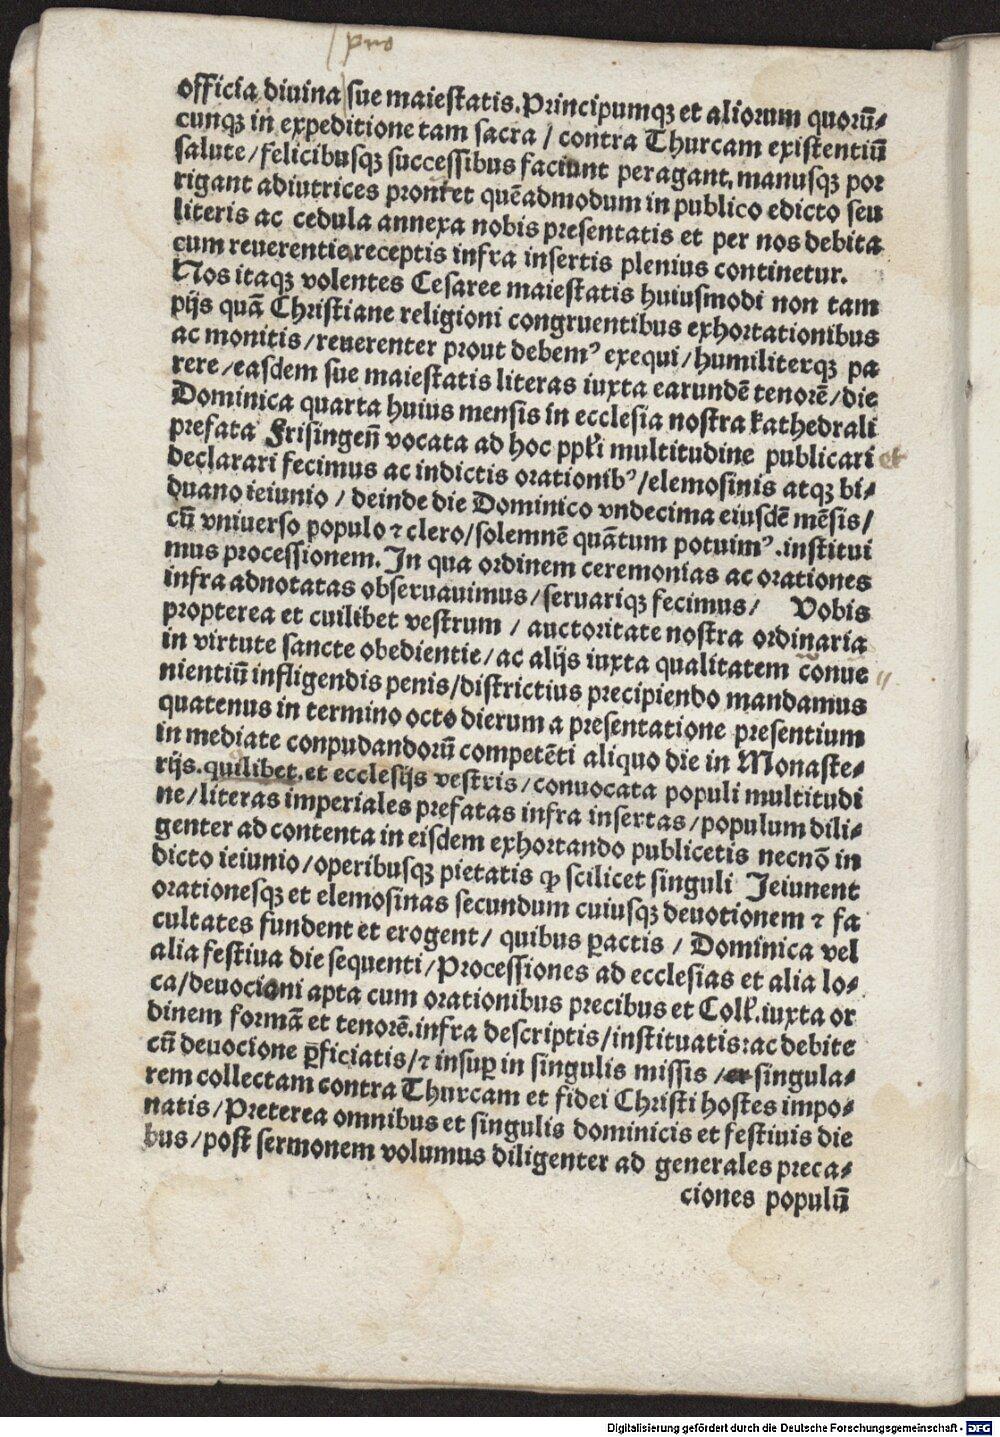 pro
officia diuina sue maiestatis. Principumqꝫ et aliorum quorū⸗
cunqꝫ in expeditione tam sacra / contra Thurcam existentiū
salute / felicibusqꝫ successibus faciunt peragant, manusqꝫ por
rigant adiutrices pront et quēadmodum in publico edicto seu
literis ac cedula annexa nobis presentatis et per nos debita
cum reuerentia receptis infra insertis plenius continetur.
Nos itaqꝫ volentes Cesaree maiestatis huiusmodi non tam
pijs quā Christiane religioni congruentibus exhortationibus
ac monitis / reuerenter prout debemꝰ exequi / humiliterqꝫ pa
rere / easdem sue maiestatis literas iuxta earundē tenorē / die
Dominica quarta huius mensis in ecclesia nostra kathedrali
prefata Frisingeñ vocata ad hoc ppƚi multitudine publicari et
declarari fecimus ac indictis orationibꝰ / elemosinis atqꝫ bi⸗
duano ieiunio / deinde die Dominico vndecima eiusdē mēsis /
cū vniuerso populo ⁊ clero / solemnē quātum potuimꝰ. institui
mus processionem. In qua ordinem ceremonias ac orationes
infra adnotatas obseruauimus / seruariqꝫ fecimus / Vobis
propterea et cuilibet vestrum / auctoritate nostra ordinaria
in virtute sancte obedientie / ac alijs iuxta qualitatem conue
nientiū infligendis penis / districtius precipiendo mandamus
quatenus in termino octo dierum a presentatione presentium
in mediate conpudandorū competēti aliquo die in Monaste⸗
rijs. quilibet. et ecclesijs vestris / conuocata populi multitudi
ne / literas imperiales prefatas infra insertas / populum dili⸗
genter ad contenta in eisdem exhortando publicetis necnō in
dicto ieiunio / operibusqꝫ pietatis ꝙ scilicet singuli Jeiunent
orationesqꝫ et elemosinas secundum cuiusqꝫ deuotionem ⁊ fa
cultates fundent et erogent / quibus ꝑactis / Dominica vel
alia festiua die sequenti / Processiones ad ecclesias et alia lo⸗
ca / deuocioni apta cum orationibus precibus et Colƚ. iuxta or
dinem formā et tenorē. infra descriptis / instituatis: ac debite
cū deuocione ꝑficiatis / ⁊ insuꝑ in singulis missis / er singula⸗
rem collectam contra Thurcam et fidei Christi hostes impo⸗
natis / Preterea omnibus et singulis dominicis et festiuis die
bus / post sermonem volumus diligenter ad generales preca⸗
ciones populū
Digitalisierung gefördert durch die Deutsche Forschungsgemeinschaft - DFG